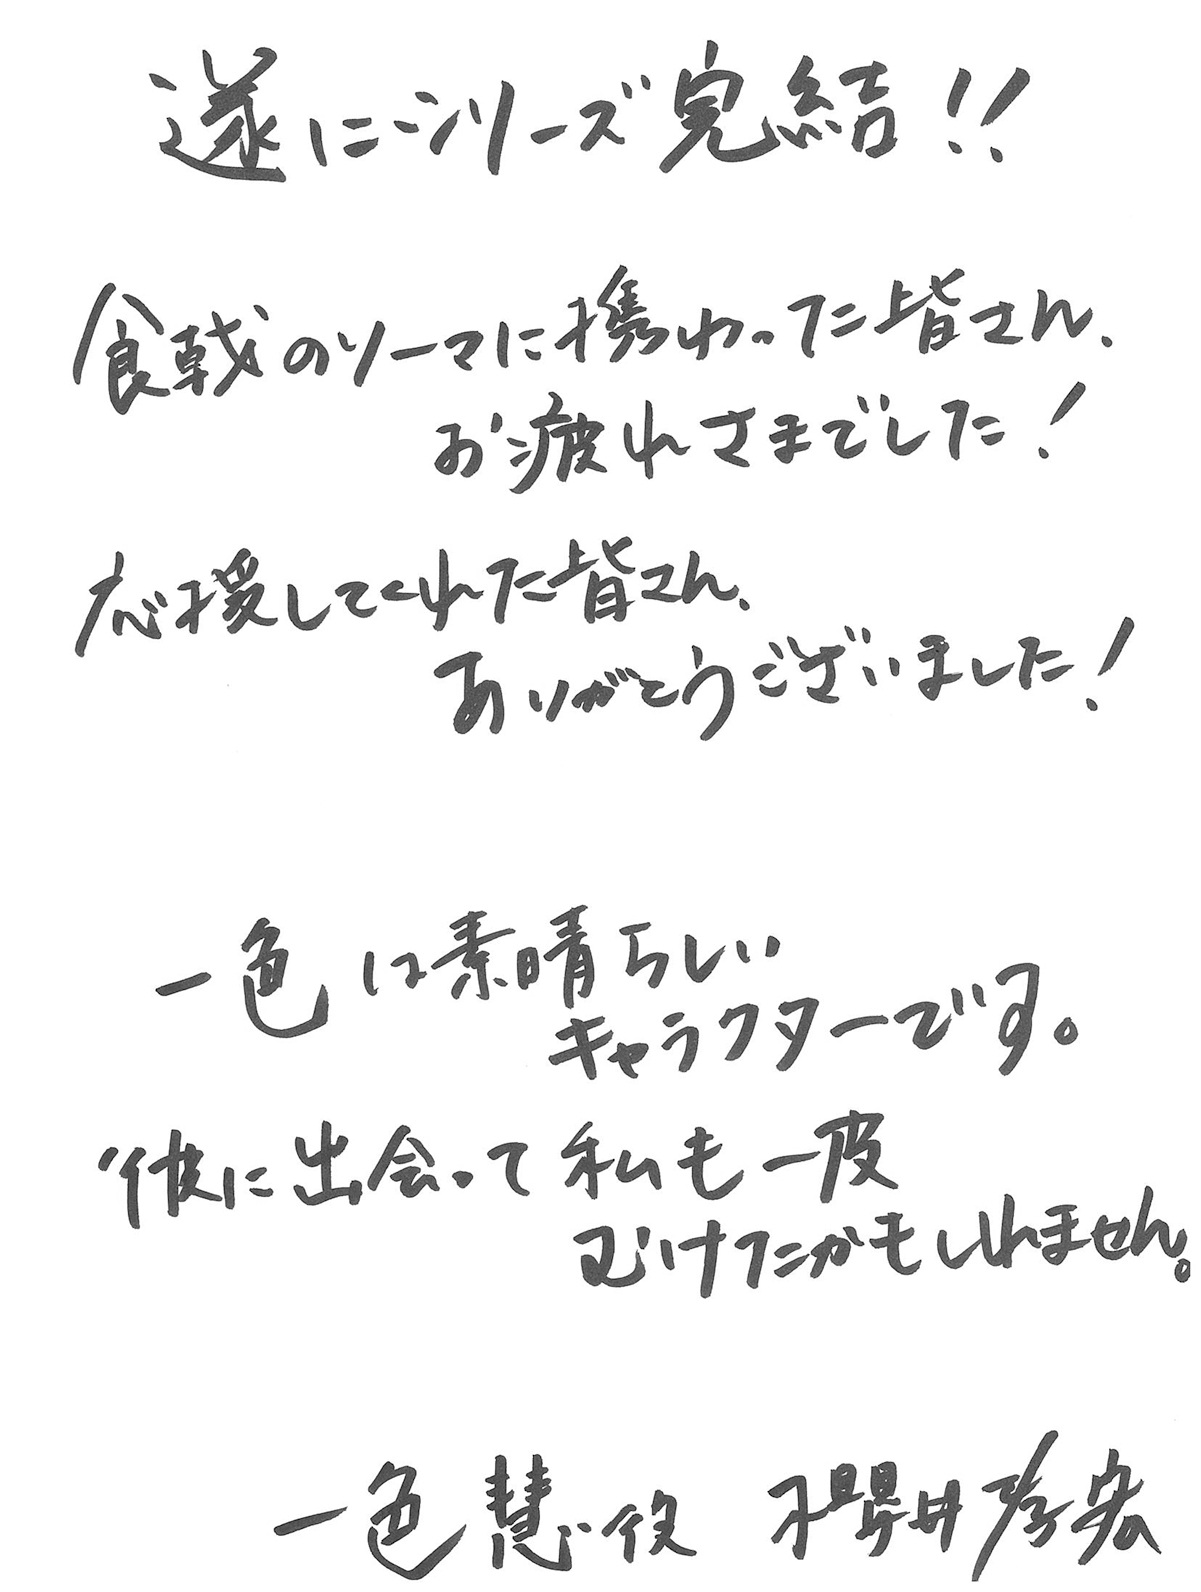 遂にシリーズ完結!!
食戟のソーマに携わった皆さん、
お疲れさまでした!
応援してくれた皆さん、
ありがとうございました!
一色は素晴らしい
キャラクターです。
彼に出会って私も一皮
むけたかもしれません。
一色慧役 櫻井孝宏